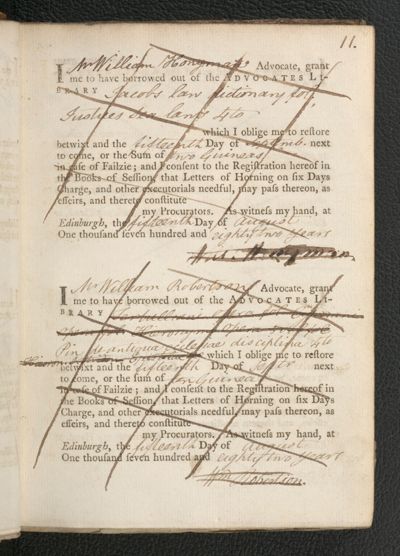 11.
I Mr William Honyman Advocate, grant
me to have borrowed out of the ADVOCATES LI-
BRARY Jacobs law dictionary for
Justices law 4to
which I oblige me to restore
betwixt and the fifteenth Day of next
to come, or the Sum of two Guineas
in case of Failzie; and I consent to the Registration hereof in
the Books of Session, that Letters of Horning on six Days
Charge, and other executorials needful, may pass thereon, as
effeirs, and thereto constitute
my Procurators. As witness my hand, at
Edinburgh, the fifteenth Day of august
One thousand seven hundred and eighty two years
I Mr William Robertson Advocate, grant
me to have borrowed out of the ADVOCATES LI-
BRARY
Pin de antiqua ecclesiae disciplina 4to
which I oblige me to restore
betwixt and the fifteenth Day of next
to come, or the sum of Guineas
in case of Failzie; and I consent to the Registration hereof in
the Books of Session, that Letters of Horning on six Days
Charge, and other executorials needful, may pass thereon, as
effeirs, and thereto constitute
my Procurators. As witness my hand, at
Edinburgh, the fifteenth Day of august
One thousand seven hundred and eighty two years
Wm Robertson.